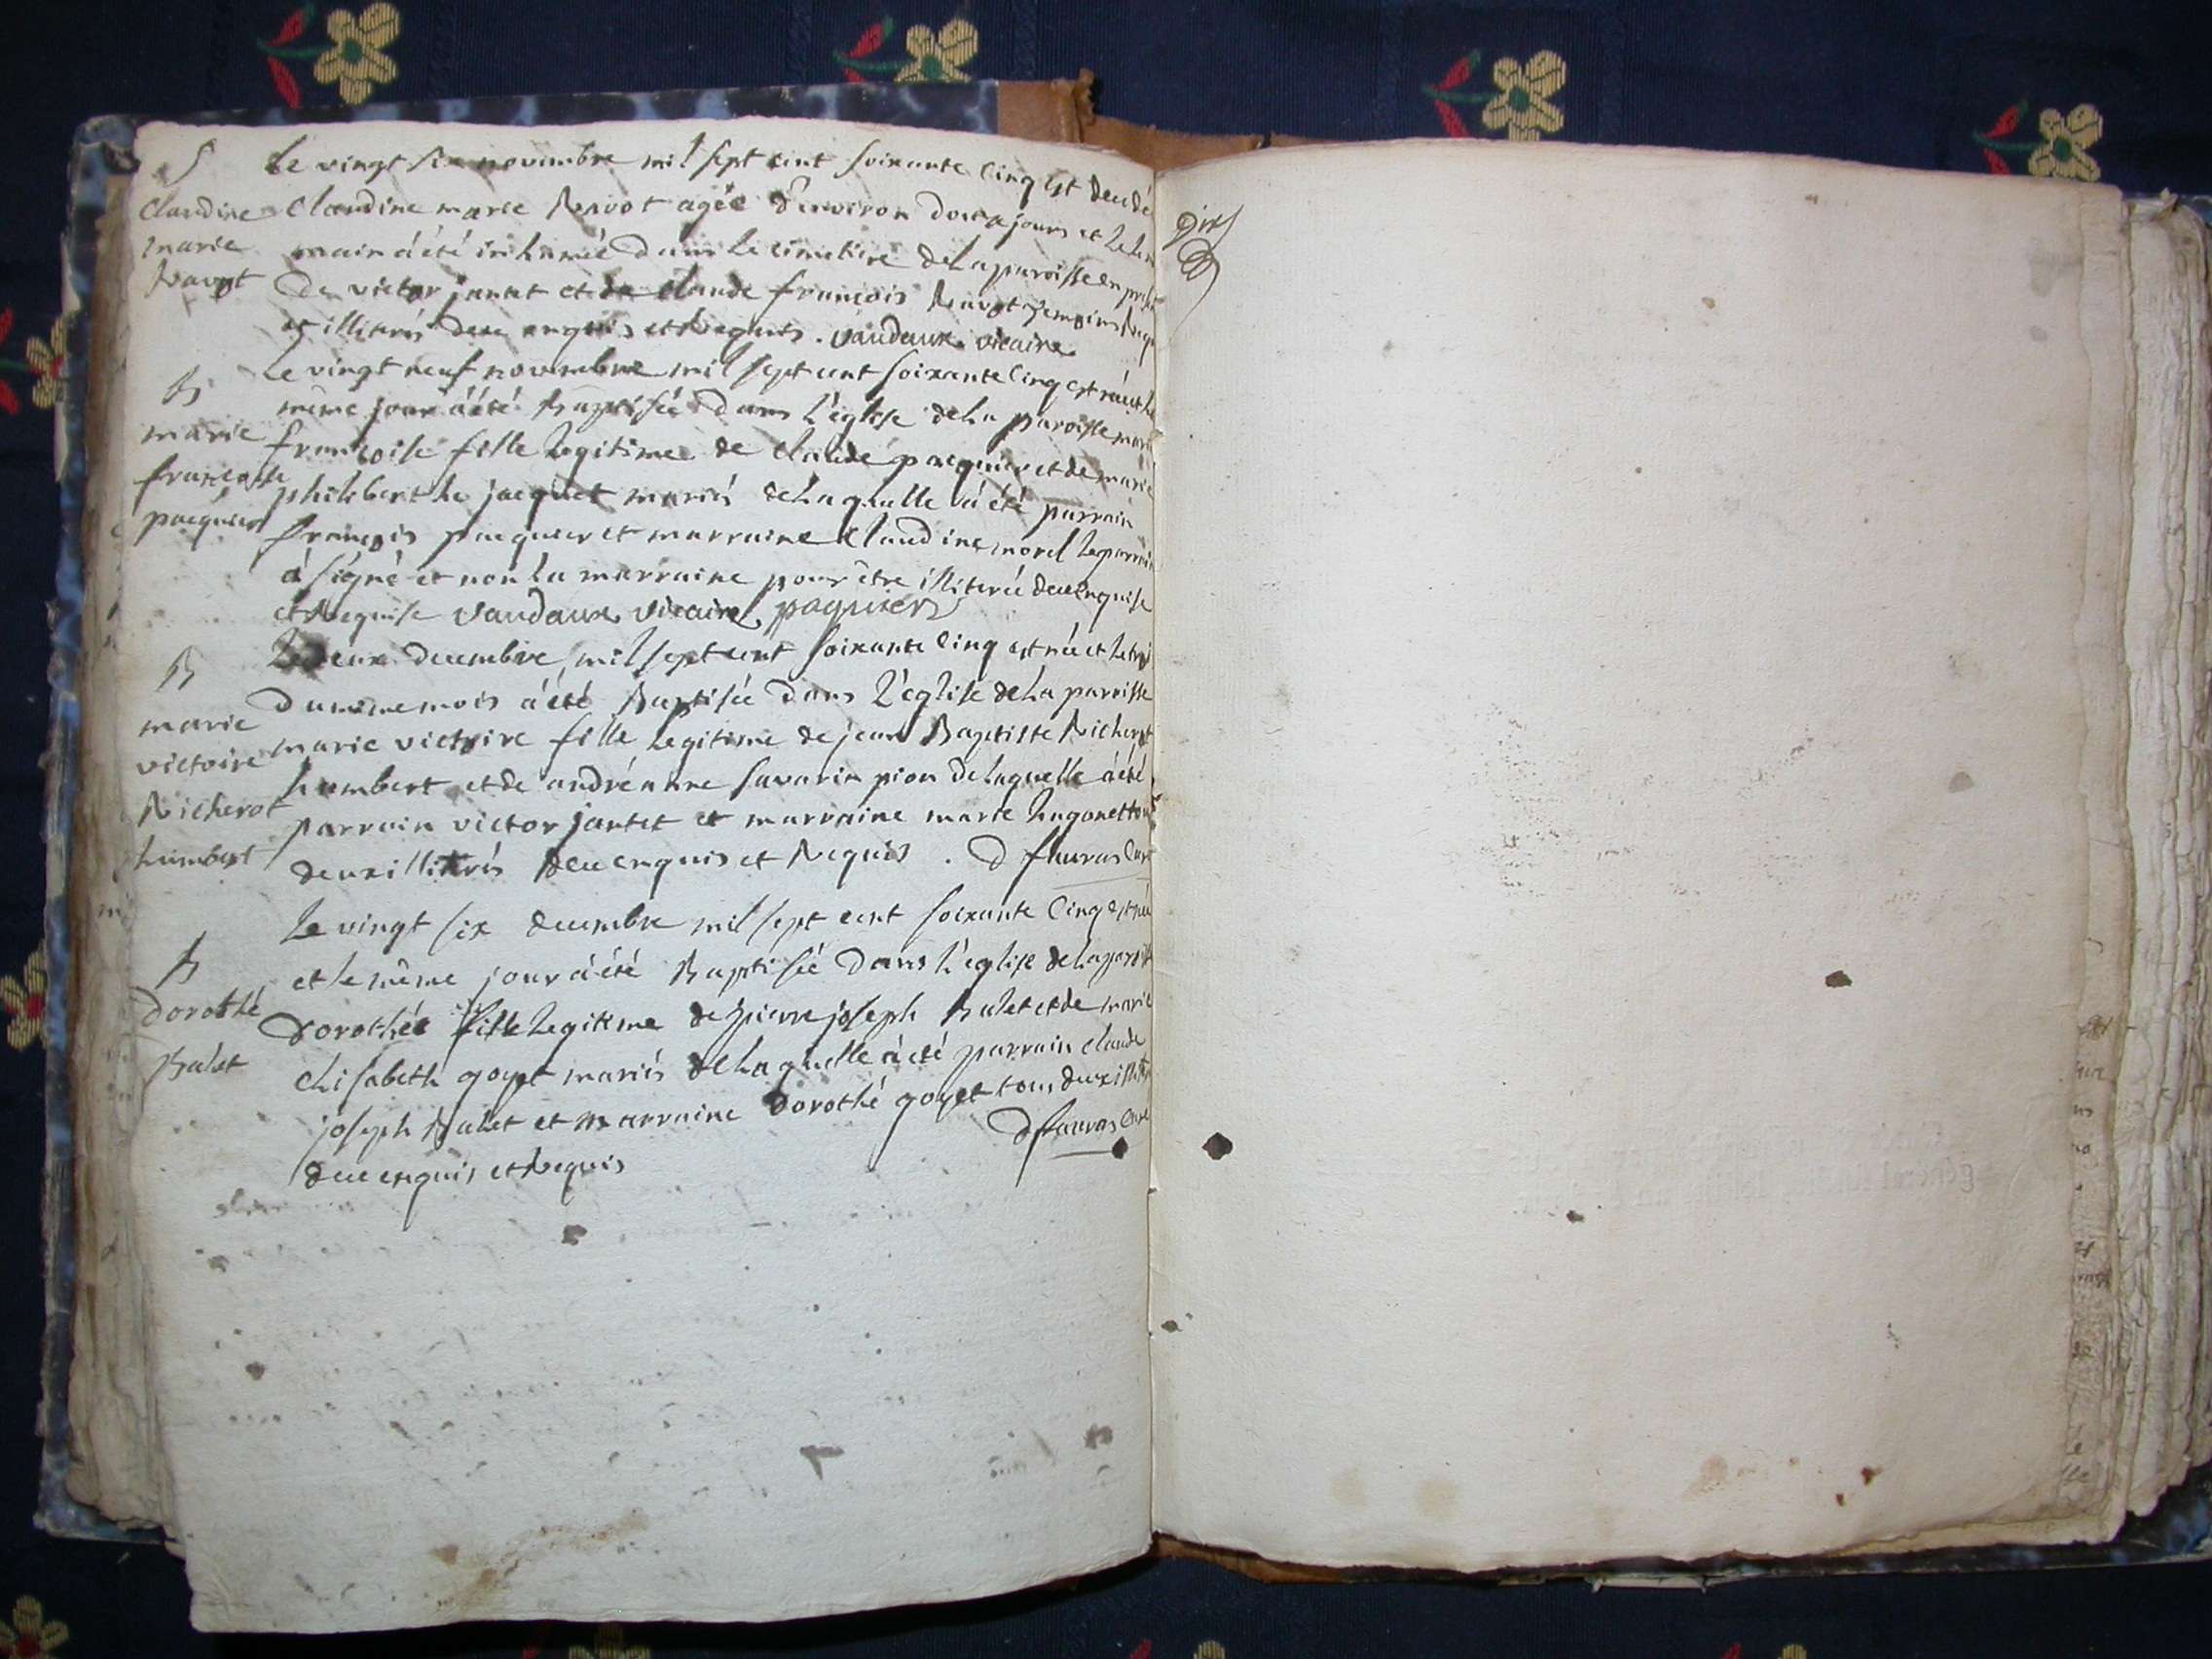 S
Claudine
marie
Navot
Le vingt six novembre mil sept cent soixante cinq est decede
Claudine marie Navot agée d'environ douze jours et le len
main á été inhumée dans le cimetiere de la paroisse en prese
de victor jantet et de claude françois Navot temoins requ
et illiterés deue enquis et requis. vaudaux vicaire
B
marie
françoise
pacquier
Le vingt neuf novembre mil sept cent soixante cinq est née et le
même jour á été Baptisée dans l'église de la paroisse marie
françoise fille legitime de claude pacquier et de marie
philiberthe jacquet mariés de laquelle á été parrain
françois pacquier et marraine claudine morel le parrain
á signé et non la marraine pour être illiterée deue enquise
et requise vaudaux vicaire paquier
B
marie
victoire
Richerot
humbert
Le deux decembre mil sept cent soixante cinq est née et le trois
du meme mois á été Baptisée dans l'église de la paroisse
marie victoire fille legitime de jean Baptiste Richerot
humbert et de andréanne savarin pion de laquelle á été
parrain victor jantet et marraine marie hugonet tous
deux illiterés deue enquis et requis. D fauras curé
B
Dorothé
Balet
Le vingt six decembre mil sept cent soixante cinq est née
et le même jour á été Baptisée dans l'église de la paroisse
Dorothée fille legitime de pierre joseph Balet et de marie
elisabeth goyet mariés de laquelle á été parrain claude
joseph Balet et marraine Dorothé goyet tous deux illiterés
deue enquis et requis
D fauras curé